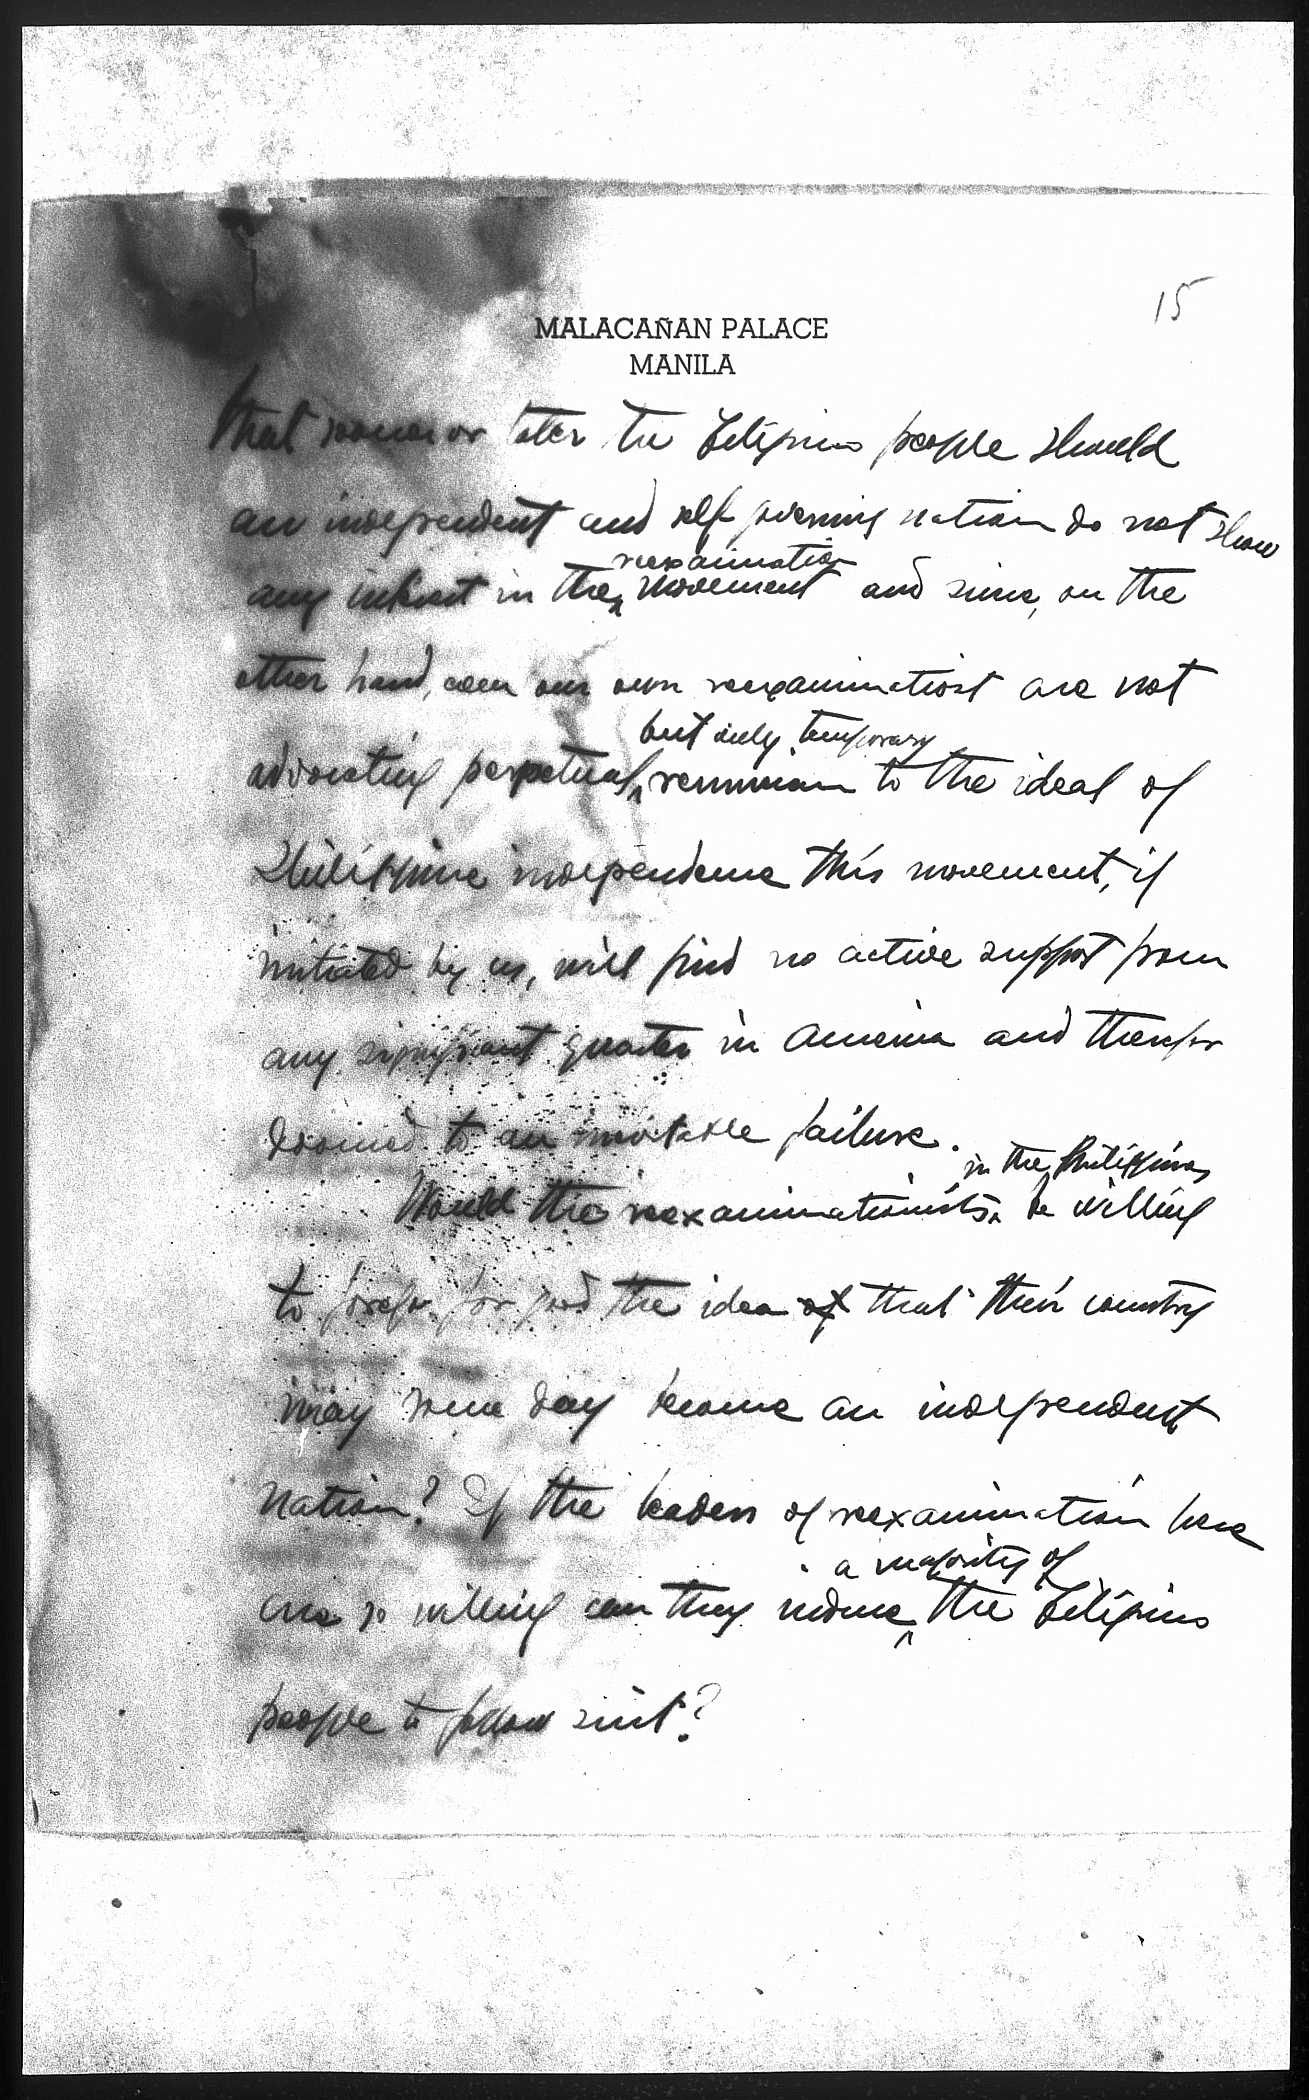 15
MALACAÑAN PALACE
MANILA
that sooner or later the Filipino people should
an independent and self governing nation do not show
reexamination
any interest in the movement and since, on the
other hand, even our own reexaminationist are not
but only temporary
advocating perpetual, to the ideal of
Philippine independence this movement, if
initiated by us, will find no active support from
any significant quarter in America and therefor
doomed to an inevitable failure.
in the Philippines
Would the reexaminationists be willing
to forego for good the idea of that their country
may some day become an independent
nation? If the leaders of reexamination here
a majority of
are so willing can they induce the Filipino
people to follow suit?